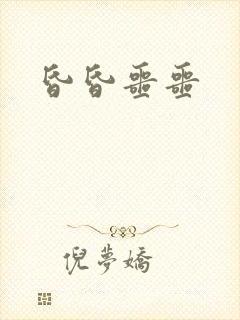 昏昏噩噩
倪夢嬌